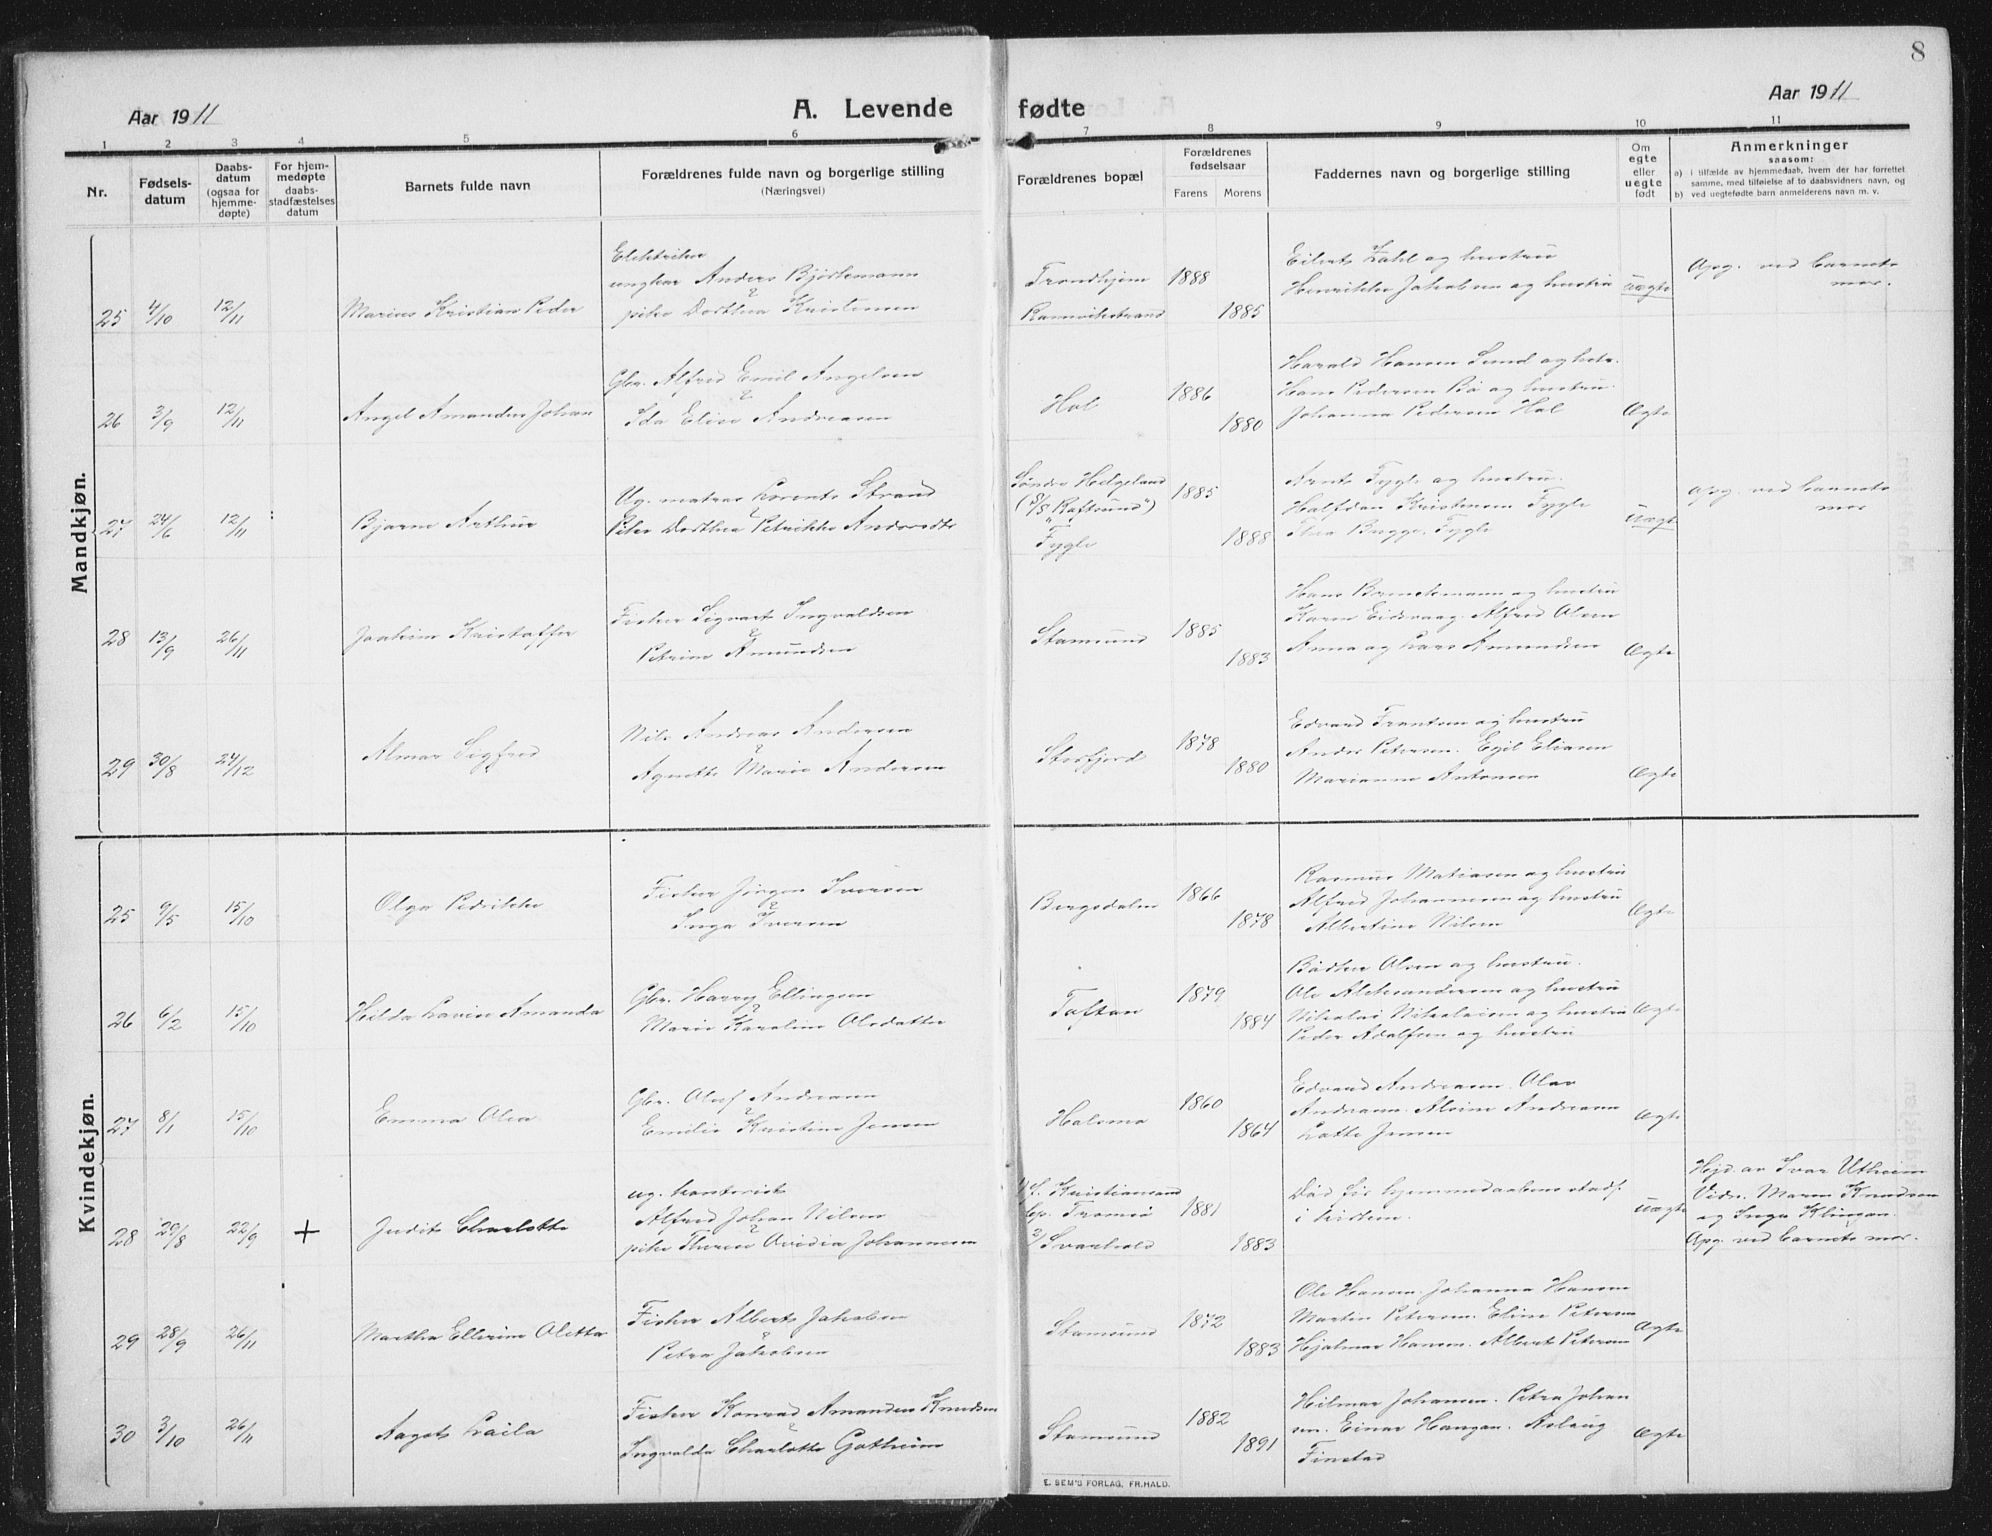 8
Aar 1911
A. Levende fødte
Aar 1911
1 2 3 4 5 6 7 8 9 10 11
Nr.
Fødsels-
datum
Daabs-
datum
(ogsaa for
hjemme-
døpte)
For hjem-
medøpte
daabs-
stadfæstelses
datum
Barnets fulde navn
Forældrenes fulde navn og borgerlige stilling
(Næringsvei)
Forældrenes bopæl
Forældrenes
fødselsaar
Farens Morens
Faddernes navn og borgerlige stilling
Om
egte
eller
uegte
født
Anmerkninger
saasom:
a) i tilfælde av hjemmedaab, hvem der har forrettet
samme, med tilføielse af to daabsvidners navn, og
b) ved uegtefødte barn anmelderens navn m. v.
Mandkjøn.
25 4/10 12/11 Marius Kristian Peder
Elektriker
ungkar Anders Björkmann
pike Dorthea Kristensen
Trondhjem
1888
1885
Eilert Zahl og hustru
Henrikke Jakobsen og hustru
uægte
Opg. ved barnets
mor.
26 3/9 12/11 Angel Amandus Johan
Gbr. Alfred Emil Angelsen
Ida Elise Andreasen
Hol
1886
1880
Harald Hansen Sund og hstr.
Hans Pedersen Bö og hustru.
Johanna Pedersen Hol
Ægte
27 24/6 12/11 Bjarne Arthur
Ug. matros Lorents Strand
Pike Dorthea Petrikke
Søndre Helgeland
(D/S "Raftsund")
Fygle
1885
1888
Arnt Fygle og hustru.
Halfdan Kristensen Fygle
Thea Brygge, Fygle
uægte
Opg. ved barnets
mor
28 13/9 26/11 Joakim Kristoffer
Fisker Sigvart Ingvaldsen
Petrine Amundsen
Stamsund
1885
1883
Hans og hustru
Karen Eidsvaag. Alfred Olsen
Anna og Lars Amundsen
Ægte
29 30/8 24/12 Almar Sigfred
Nils Andreas Andersen
Agnethe Marie Andersen
Storfjord
1878
1880
Edvard Frantsen og hustru
Anders Petersen. Egil Eliasen
Marianne Antonsen
Ægte
Kvindekjøn.
25 9/5 15/10 Olga Pedrikke
Fisker Jörgen Iversen
Inga Iversen
Bergsdalen
1866
1878
Rasmus Matiasen og hustru
Alfred Johannesen og hustru
Albertine Nilsen
Ægte
26 6/2 15/10 Hilda Lovise Amanda
Gbr. Harry Ellingsen
Marie Karoline Olsdatter
Toften
1879
1884
Bödker Olsen og hustru.
Ole Aleksandersen og hustru
Nikolai Nikolaisen og hustru
Peder Adolfsen og hustru
Ægte
27 8/1 15/10 Emma Olea
Gbr. Oluf Andreasen
Emilie Kristine Jensen
Halsmo
1860
1864
Edvard Andreasen. Olav
Andreasen. Alvine Andreasen
Lotte Jensen
Ægte
28 29/8 22/9 + Judit Charlotte
ug. kontorist
Alfred Johan Nilsen
pike Therese Ovidia Johannesen
Kristiansund
Tromsö
2/ Svarhold
1881
1883
Död för hjemmedaabens stadf.
i kirken.
uægte
Hjd. av Ivar Utheim
Vidn. Maren Knudsen
og Inga Klingan.
Opg. ved barnets mor.
29 28/9 26/11 Martha Ellerine Oletta
Fisker Albert Jakobsen
Petra Jakobsen
Stamsund
1872
1883
Ole Hansen. Johanna Hansen
Martin Petersen. Eline Petersen
Hjalmar Hansen. Albert Petersen
Ægte
30 3/10 26/11 Aagot Laila
Fisker Konrad Amandus Knudsen
Ingvalda Charlotte Gotheim
Stamsund
1882
1891
Hilmar Johansen. Petra Johan
sen. Einar Haugan. Aslaug
Finstad
Ægte
E. SEM'S FORLAG, FR.HALD.